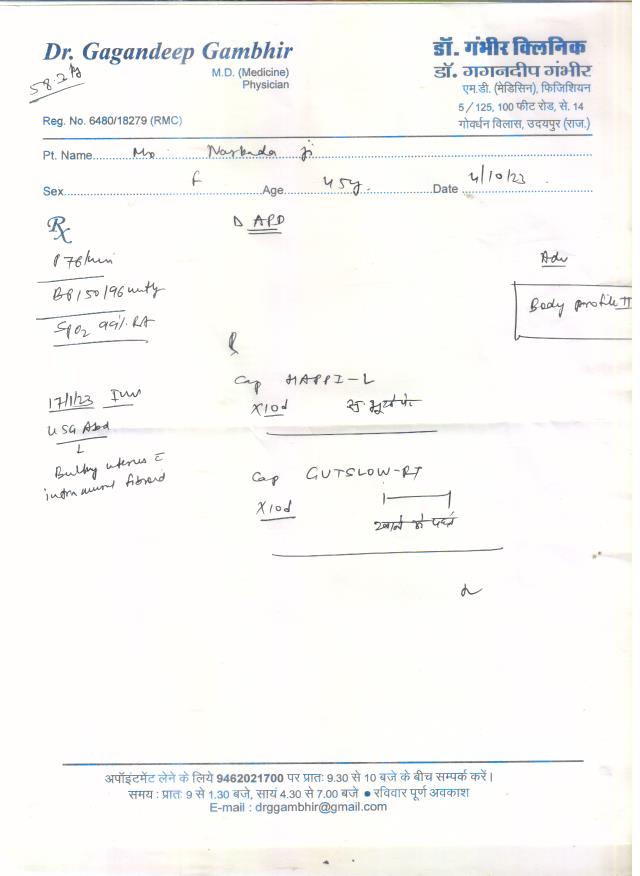 Dr. Gagandeep Gambhir
M.D. (Medicine)
Physician
58.2 kg
Reg. No. 6480/18279 (RMC)
डॉ. गंभीर क्लिनिक
डॉ. गगनदीप गंभीर
एम.डी. (मेडिसिन), फिजिशियन
5/125, 100 फीट रोड, से. 14
गोवर्धन विलास, उदयपुर (राज.)
Pt. Name Narbada ji
Sex F Age 45y. Date 4/10/23
Rx
D APD
P 76/min
BP 150/96 mmHg
SpO2 99% RA
Adv
Body profile II
Cap HAPPI-L
X10d
17/1/23 Inv
USG Abd
Bulky uterus c
intramural fibroid
Cap GUTSLOW-RT
X10d
खाने से पहले
अपॉइंटमेंट लेने के लिये 9462021700 पर प्रातः 9.30 से 10 बजे के बीच सम्पर्क करें।
समय : प्रातः 9 से 1.30 बजे, सायं 4.30 से 7.00 बजे ● रविवार पूर्ण अवकाश
E-mail : drggambhir@gmail.com